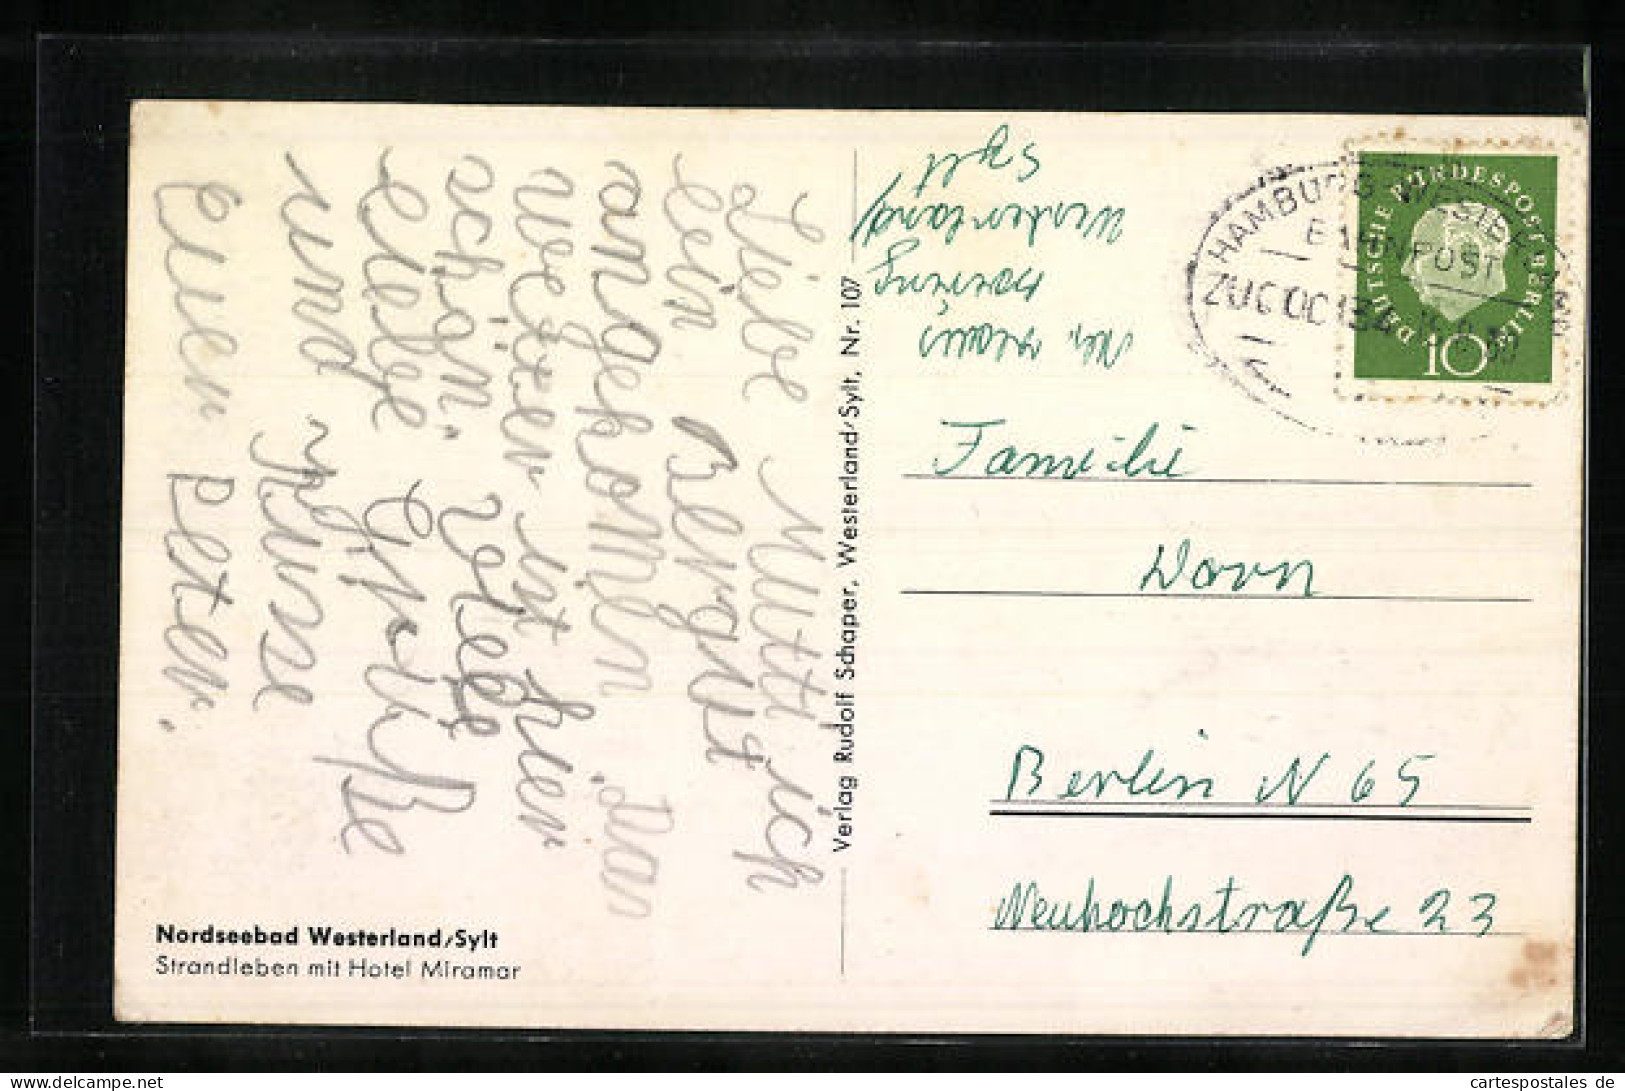 Liebe Mutti ich
bin vergnugt
angekommen. Das
wetter ist hier
schön. viele
Grüße
und
Küsse
euer Peter.
Nordseebad Westerland/Sylt
Strandleben mit Hotel Miramar
Verlag Rudolf Schaper, Westerland/Sylt, Nr. 107
Westerland/
Sylt
HAMBURG-WESTERLAND
BAHNPOST
ZUG
DEUTSCHE BUNDESPOST BERLIN
10
Familie
Dorn
Berlin N 65
Neuhochstraße 23
cartespostales de